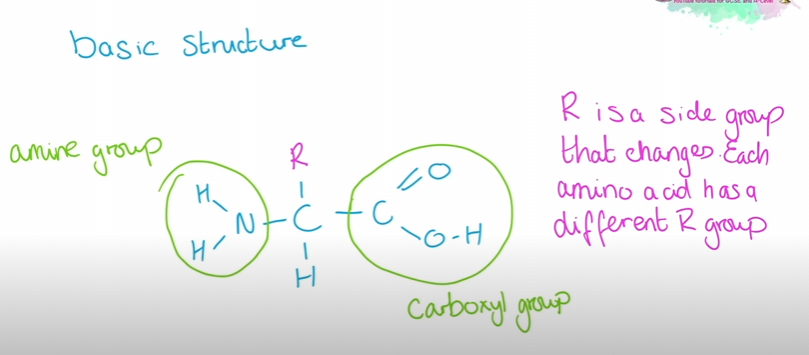 basic structure
amine group
R
H
N-C-C
=O
H
O-H
H
Carboxyl group
R is a side group
that changes. Each
amino acid has a
different R group